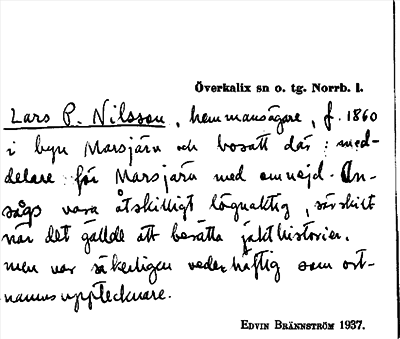 Överkalix sn o. tg. Norrb. l.
Lars P. Nilsson, hemmansägare, f. 1860
i byn Marsjärn och bosatt där: med-
delare för Marsjärn med omnejd. An-
sågs vara åtskilligt lögnaktig, särskilt
när det gällde att berätta jakthistorier,
men var säkerligen vederhäftig som ort-
namnsupptecknare.
EDVIN BRÄNNSTRÖM 1937.